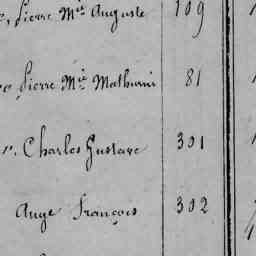 Pierre Mie Auguste 109
Pierre Mie Mathurin 81
Charles Gustave 301
Ange François 302